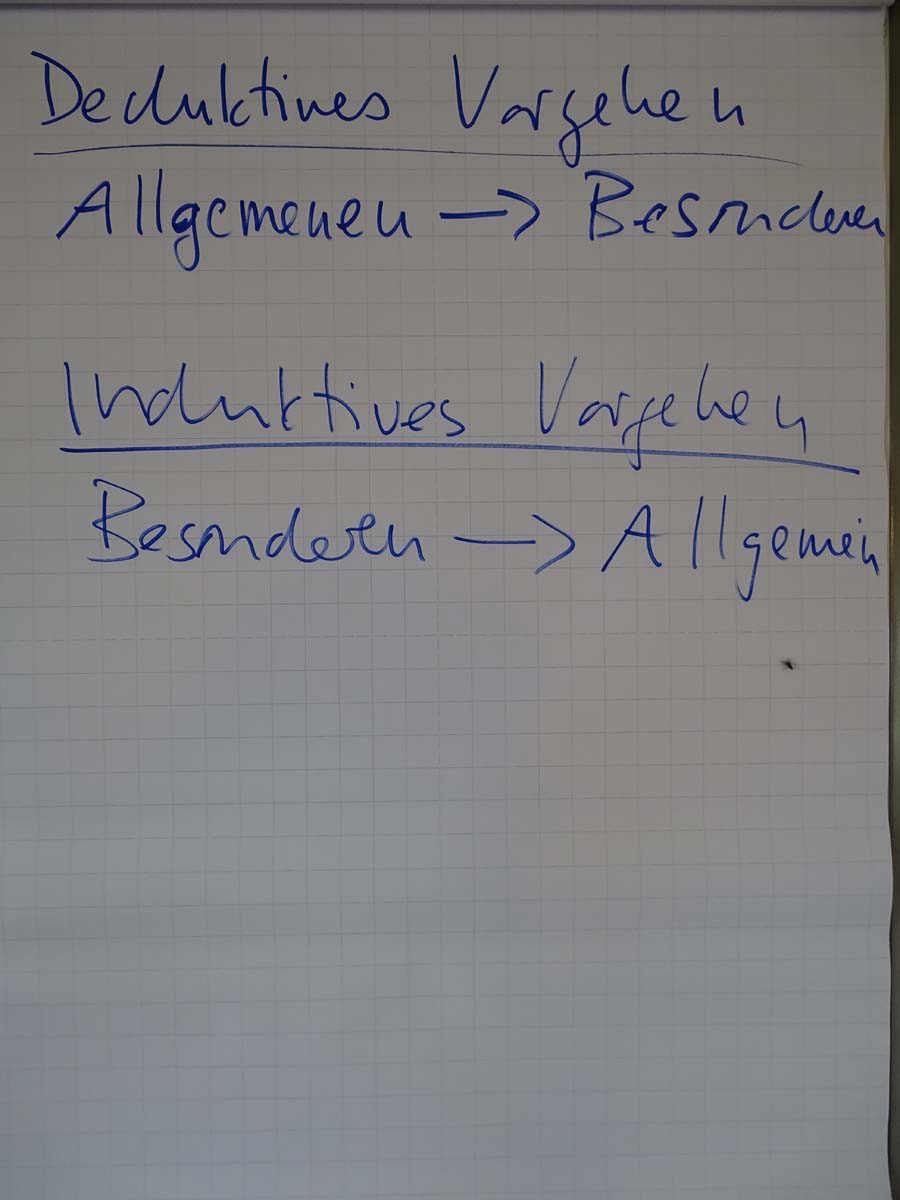 Deduktives Vorgehen
Allgemeinen → Besonderen
Induktives Vorgehen
Besonderen → Allgemein